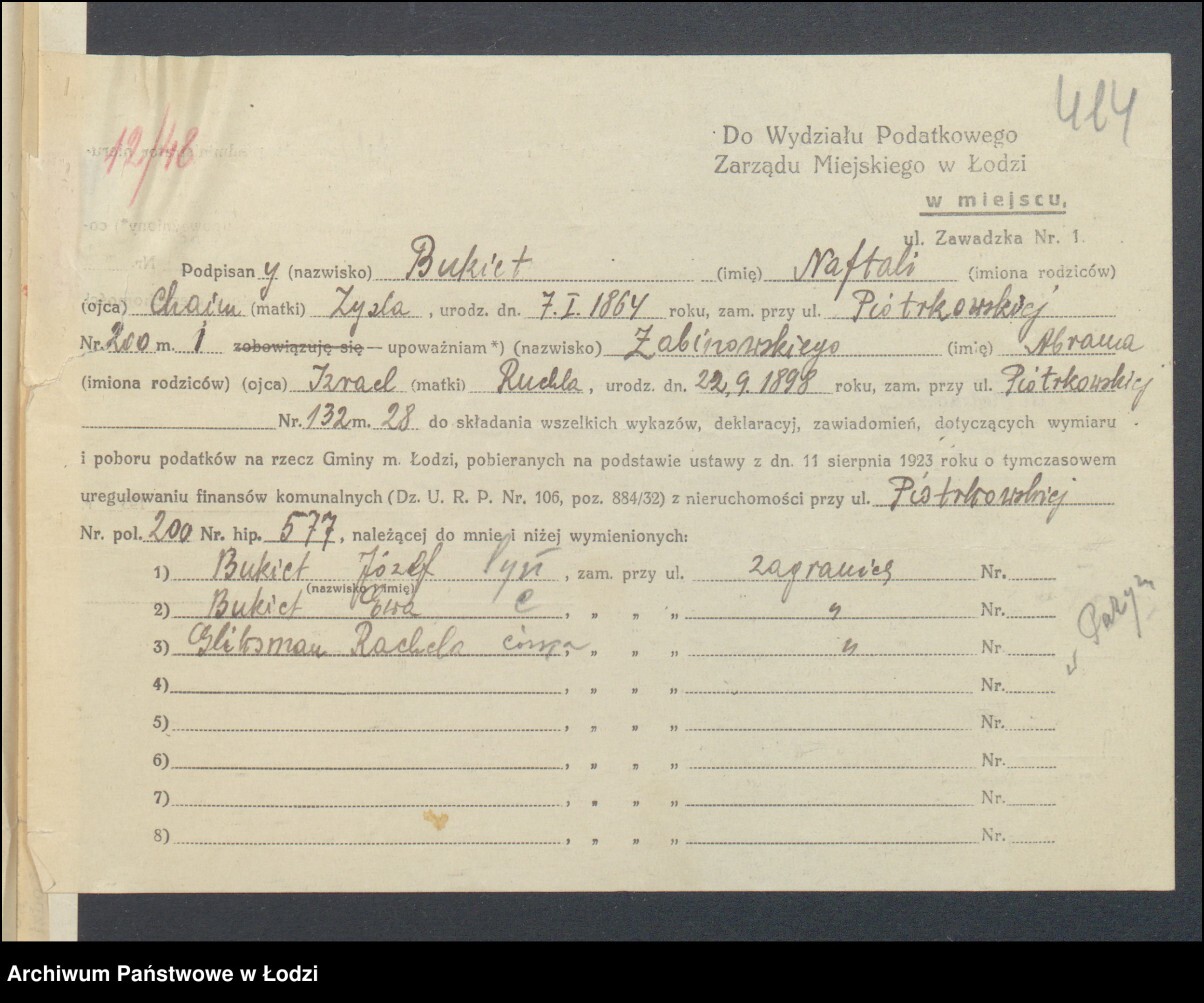 414
12/48
Do Wydziału Podatkowego
Zarządu Miejskiego w Łodzi
w miejscu,
ul. Zawadzka Nr. 1.
Podpisan y (nazwisko) Bukiet (imię) Naftali (imiona rodziców)
(ojca) Chaim (matki) Zysla, urodz. dn. 7.I.1864 roku, zam. przy ul. Piotrkowskiej
Nr. 200 m. 1 zobowiązuję się — upoważniam *) (nazwisko) Zabinowskiego (imię) Abrama
(imiona rodziców) (ojca) Izrael (matki) Ruchla, urodz. dn. 22.9.1898 roku, zam. przy ul. Piotrkowskiej
Nr. 132 m. 28 do składania wszelkich wykazów, deklaracyj, zawiadomień, dotyczących wymiaru
i poboru podatków na rzecz Gminy m. Łodzi, pobieranych na podstawie ustawy z dn. 11 sierpnia 1923 roku o tymczasowem
uregulowaniu finansów komunalnych (Dz. U. R. P. Nr. 106, poz. 884/32) z nieruchomości przy ul. Piotrkowskiej
Nr. pol. 200 Nr. hip. 577, należącej do mnie i niżej wymienionych:
1) Bukiet Józef syn, zam. przy ul. zagranicą Nr.
(nazwisko i imię)
2) Bukiet Ewa c, „ „ „ " Nr.
3) Glitsman Rachela córka, „ „ „ " Nr
w Paryżu
4) , „ „ „ Nr.
5) , „ „ „ Nr.
6) , „ „ „ Nr.
7) , „ „ „ Nr.
8) , „ „ „ Nr.
Archiwum Państwowe w Łodzi